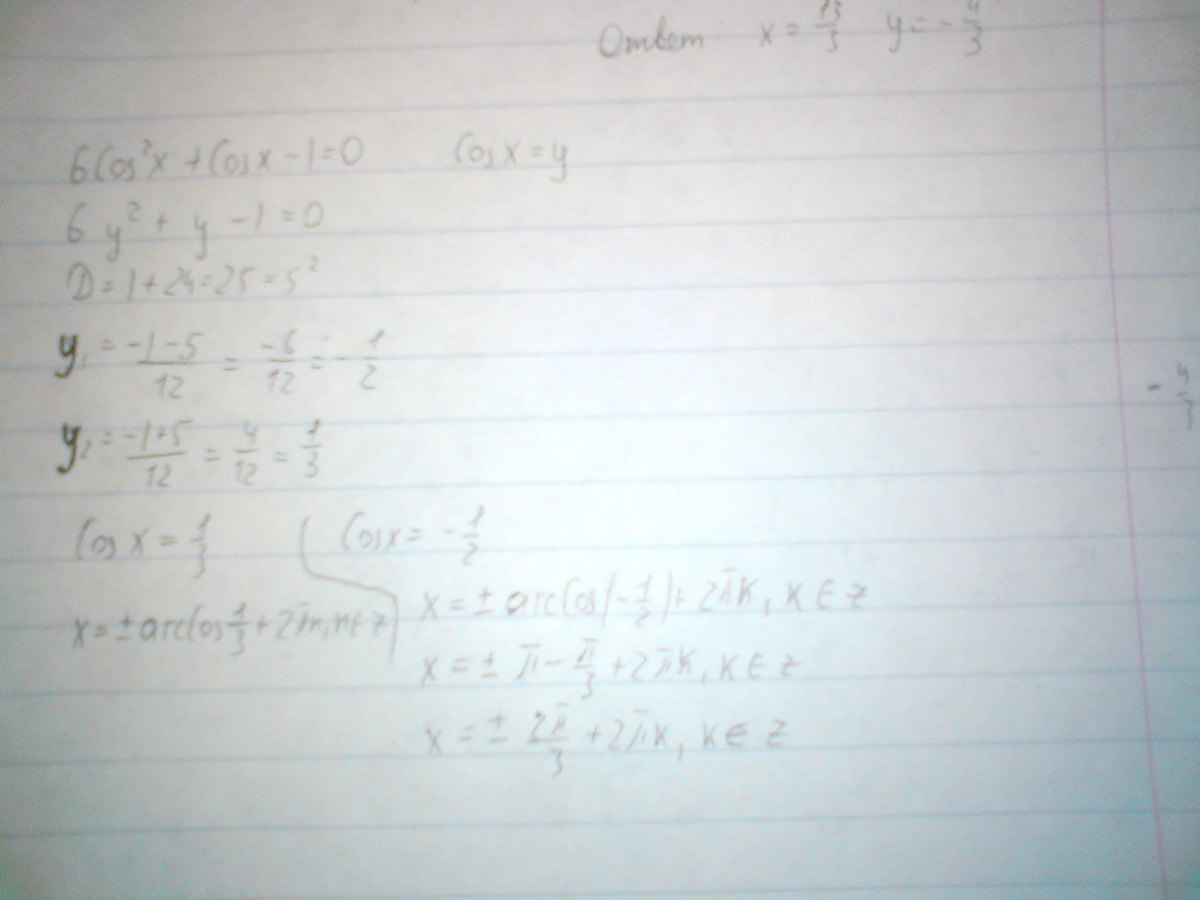 Ответ x = 13/3 y = - 4/3
6Cos²x + Cosx - 1 = 0 Cosx = y
6y² + y - 1 = 0
D = 1 + 24 = 25 = 5²
y₁ = -1-5/12 = -6/12 = - 1/2
y₂ = -1+5/12 = 4/12 = 1/3
Cos x = 1/3 Cosx = - 1/2
x = ± arcCos 1/3 + 2πn, n ∈ z x = ± arcCos(- 1/2) + 2πK, K ∈ z
x = ± π - π/3 + 2πK, K ∈ z
x = ± 2π/3 + 2πK, K ∈ z